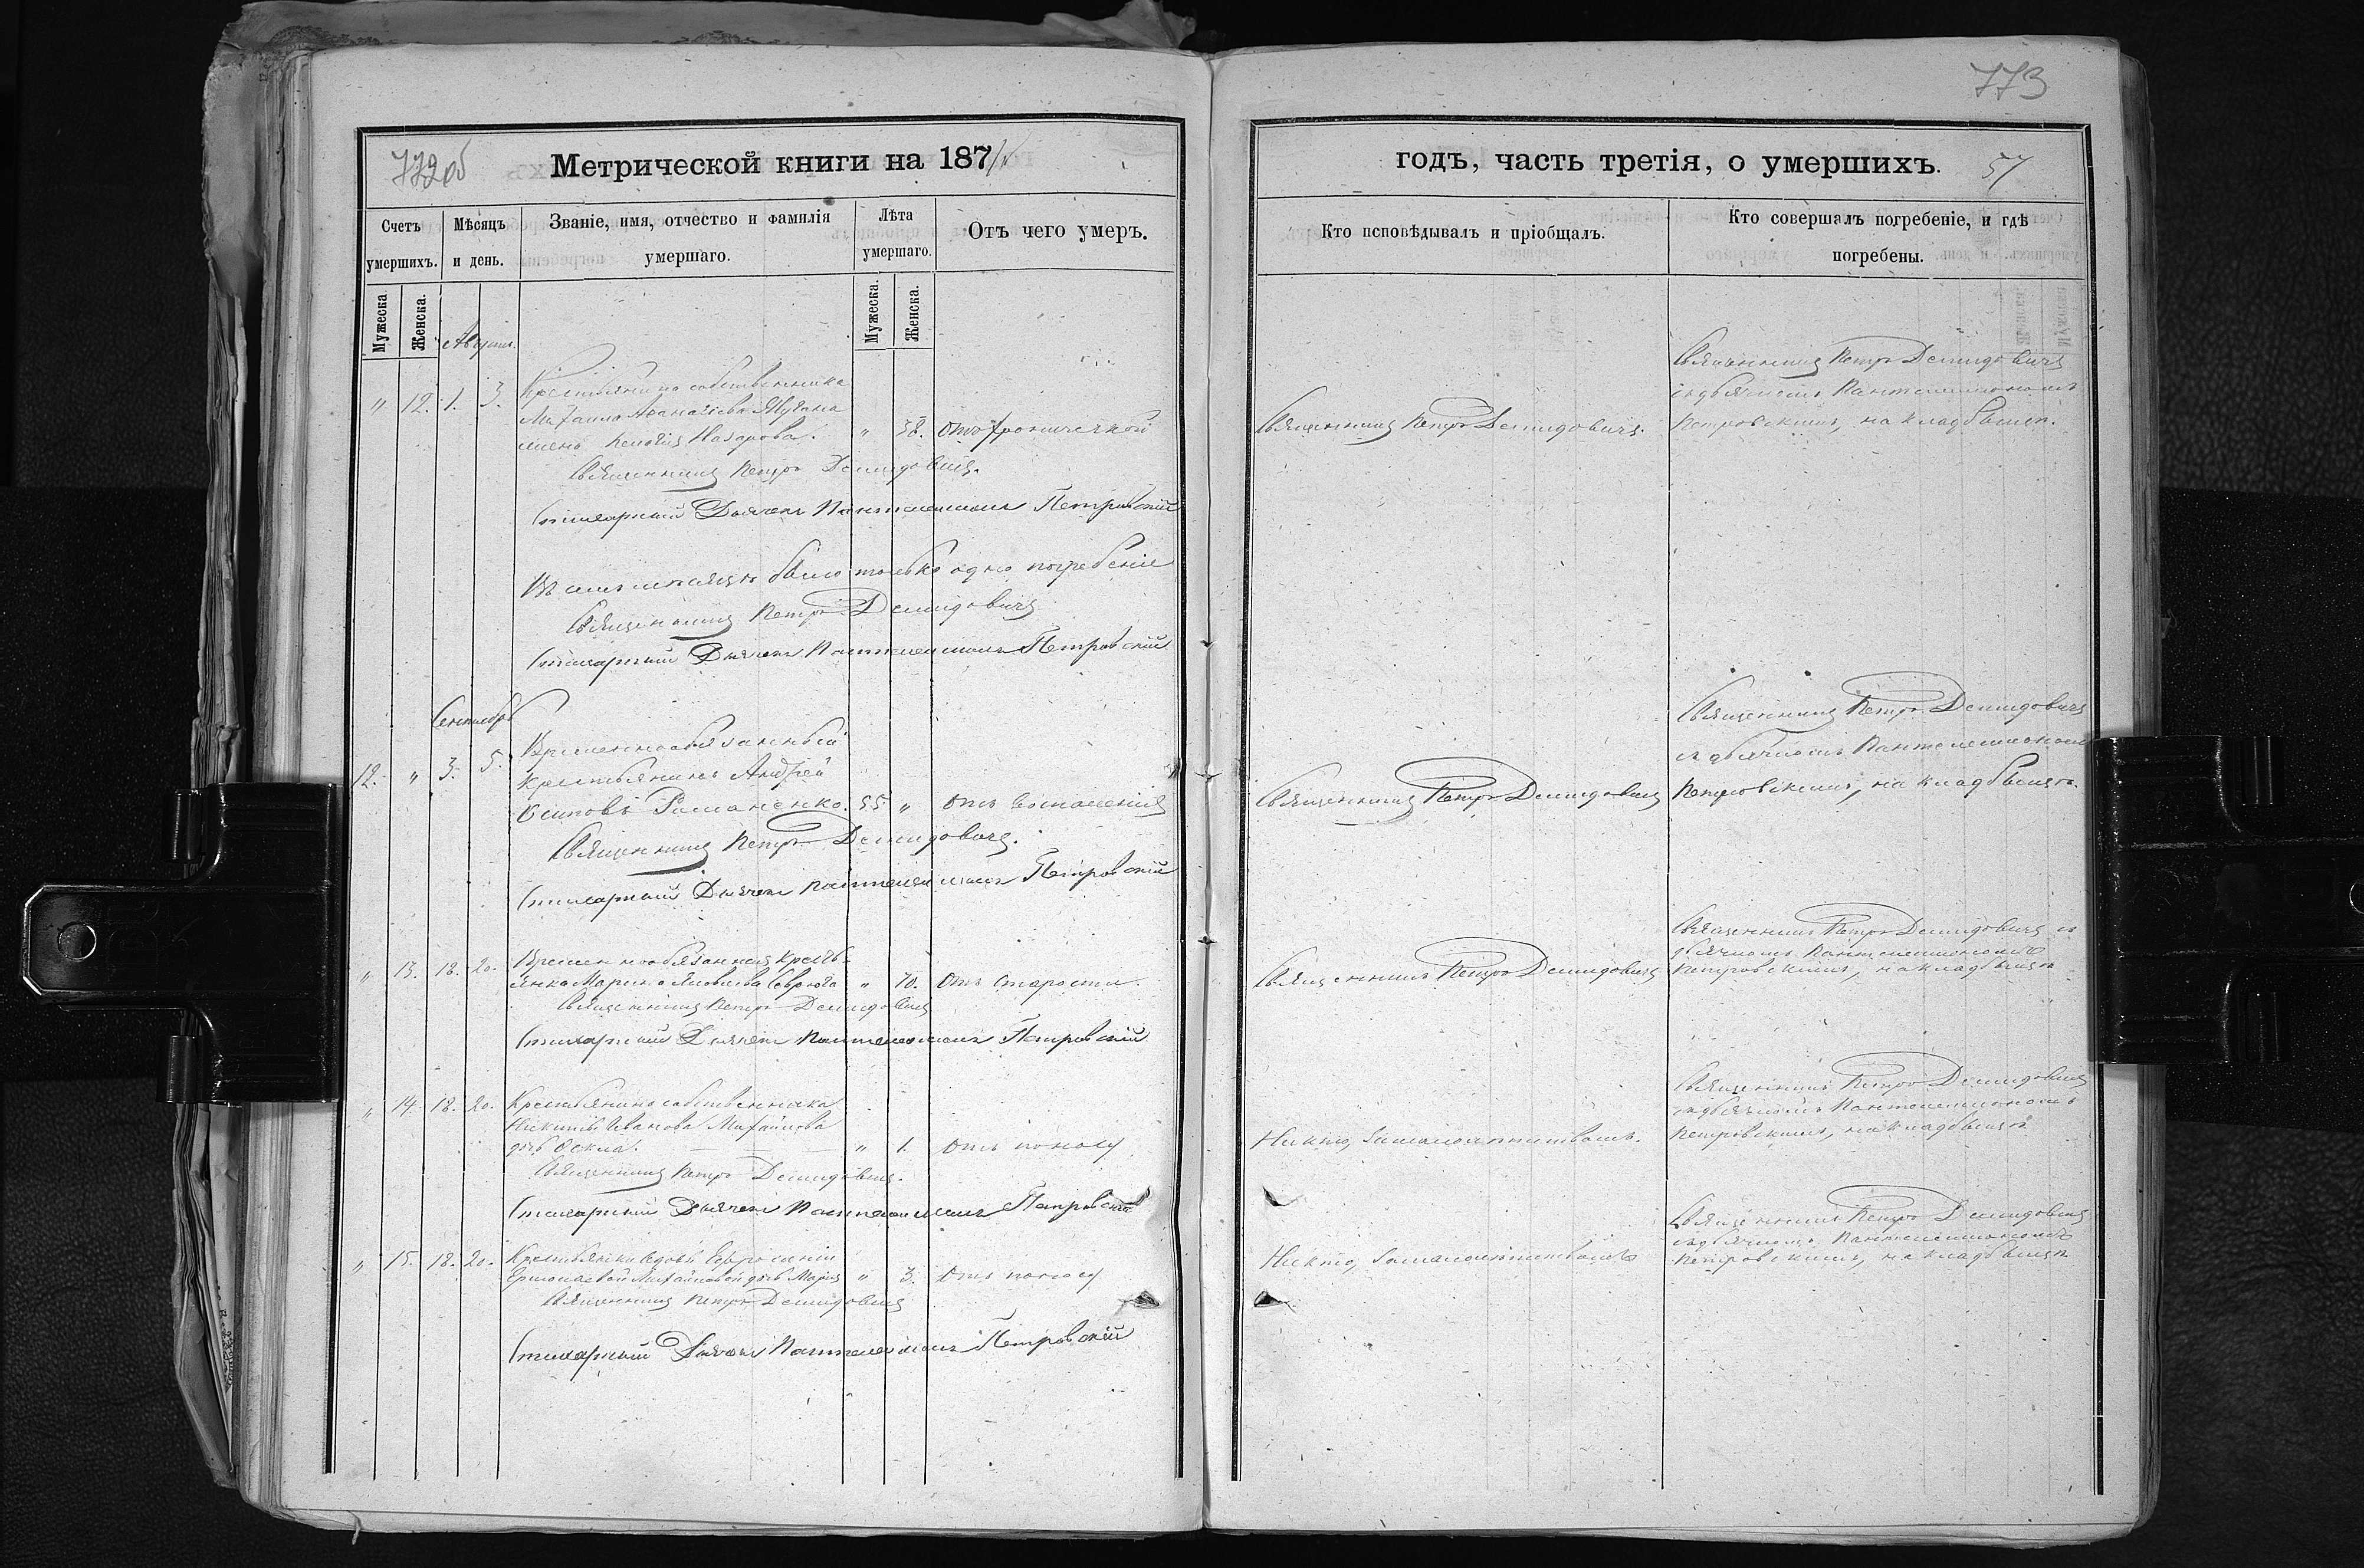 772об
Метрической книги на 187
Счетъ умершихъ.
Мѣсяцъ и день.
Званіе, имя, отчество и фамилія умершаго.
Лѣта умершаго.
Отъ чего умеръ.
Мужеска
Женска.
Мужеска.
Женска.
Августъ.
" 12. 1. 3. Крестьянина собственника
Михаила Аѳанасіева
жена Назарова. " 38. Отъ хронической
Священникъ Петръ Демидовичъ.
Стихарный Дьячекъ Пантелеимонъ Петровскій
Въ семъ мѣсяцѣ было только одно погребеніе
Священникъ Петръ Демидовичъ
Стихарный Дьячекъ Пантелеимонъ Петровскій
Сентябрь
12. " 3. 5. Временнообязанный
крестьянинъ Андрей
Осиповъ Романенко. 55. " Отъ воспаленія
Священникъ Петръ Демидовичъ.
Стихарный Дьячекъ Пантелеимонъ Петровскій
" 13. 18. 20. Временнообязанная кресть-
янка Марина Яковлева Севрюга " 70. Отъ старости.
Священникъ Петръ Демидовичъ
Стихарный Дьячекъ Пантелеимонъ Петровскій
" 14. 18. 20. Крестьянина собственника
Никиты Иванова Михайлова
дочь Ѳекла. " 1. Отъ поносу
Священникъ Петръ Демидовичъ.
Стихарный Дьячекъ Пантелеимонъ Петровскій
" 15. 18. 20. Крестьянки вдовы Евфросиніи
Ермолаевой Михайловой дочь Марія " 3. Отъ поносу
Священникъ Петръ Демидовичъ
Стихарный Дьячекъ Пантелеимонъ Петровскій
773
годъ, часть третія, о умершихъ.
57
Кто исповѣдывалъ и пріобщалъ.
Кто совершалъ погребеніе, и гдѣ погребены.
Священникъ Петръ Демидовичъ.
Священникъ Петръ Демидовичъ
съ дьячкомъ Пантелеимономъ
Петровскимъ, на кладбищѣ.
Священникъ Петръ Демидовичъ
Священникъ Петръ Демидовичъ
съ дьячкомъ Пантелеимономъ
Петровскимъ, на кладбищѣ.
Священникъ Петръ Демидовичъ
Священникъ Петръ Демидовичъ съ
дьячкомъ Пантелеимономъ
Петровскимъ, на кладбищѣ
Никто, за малолѣтствомъ.
Священникъ Петръ Демидовичъ
съ дьячкомъ Пантелеимономъ
Петровскимъ, на кладбищѣ
Никто, за малолѣтствомъ
Священникъ Петръ Демидовичъ
съ дьячкомъ Пантелеимономъ
Петровскимъ, на кладбищѣ